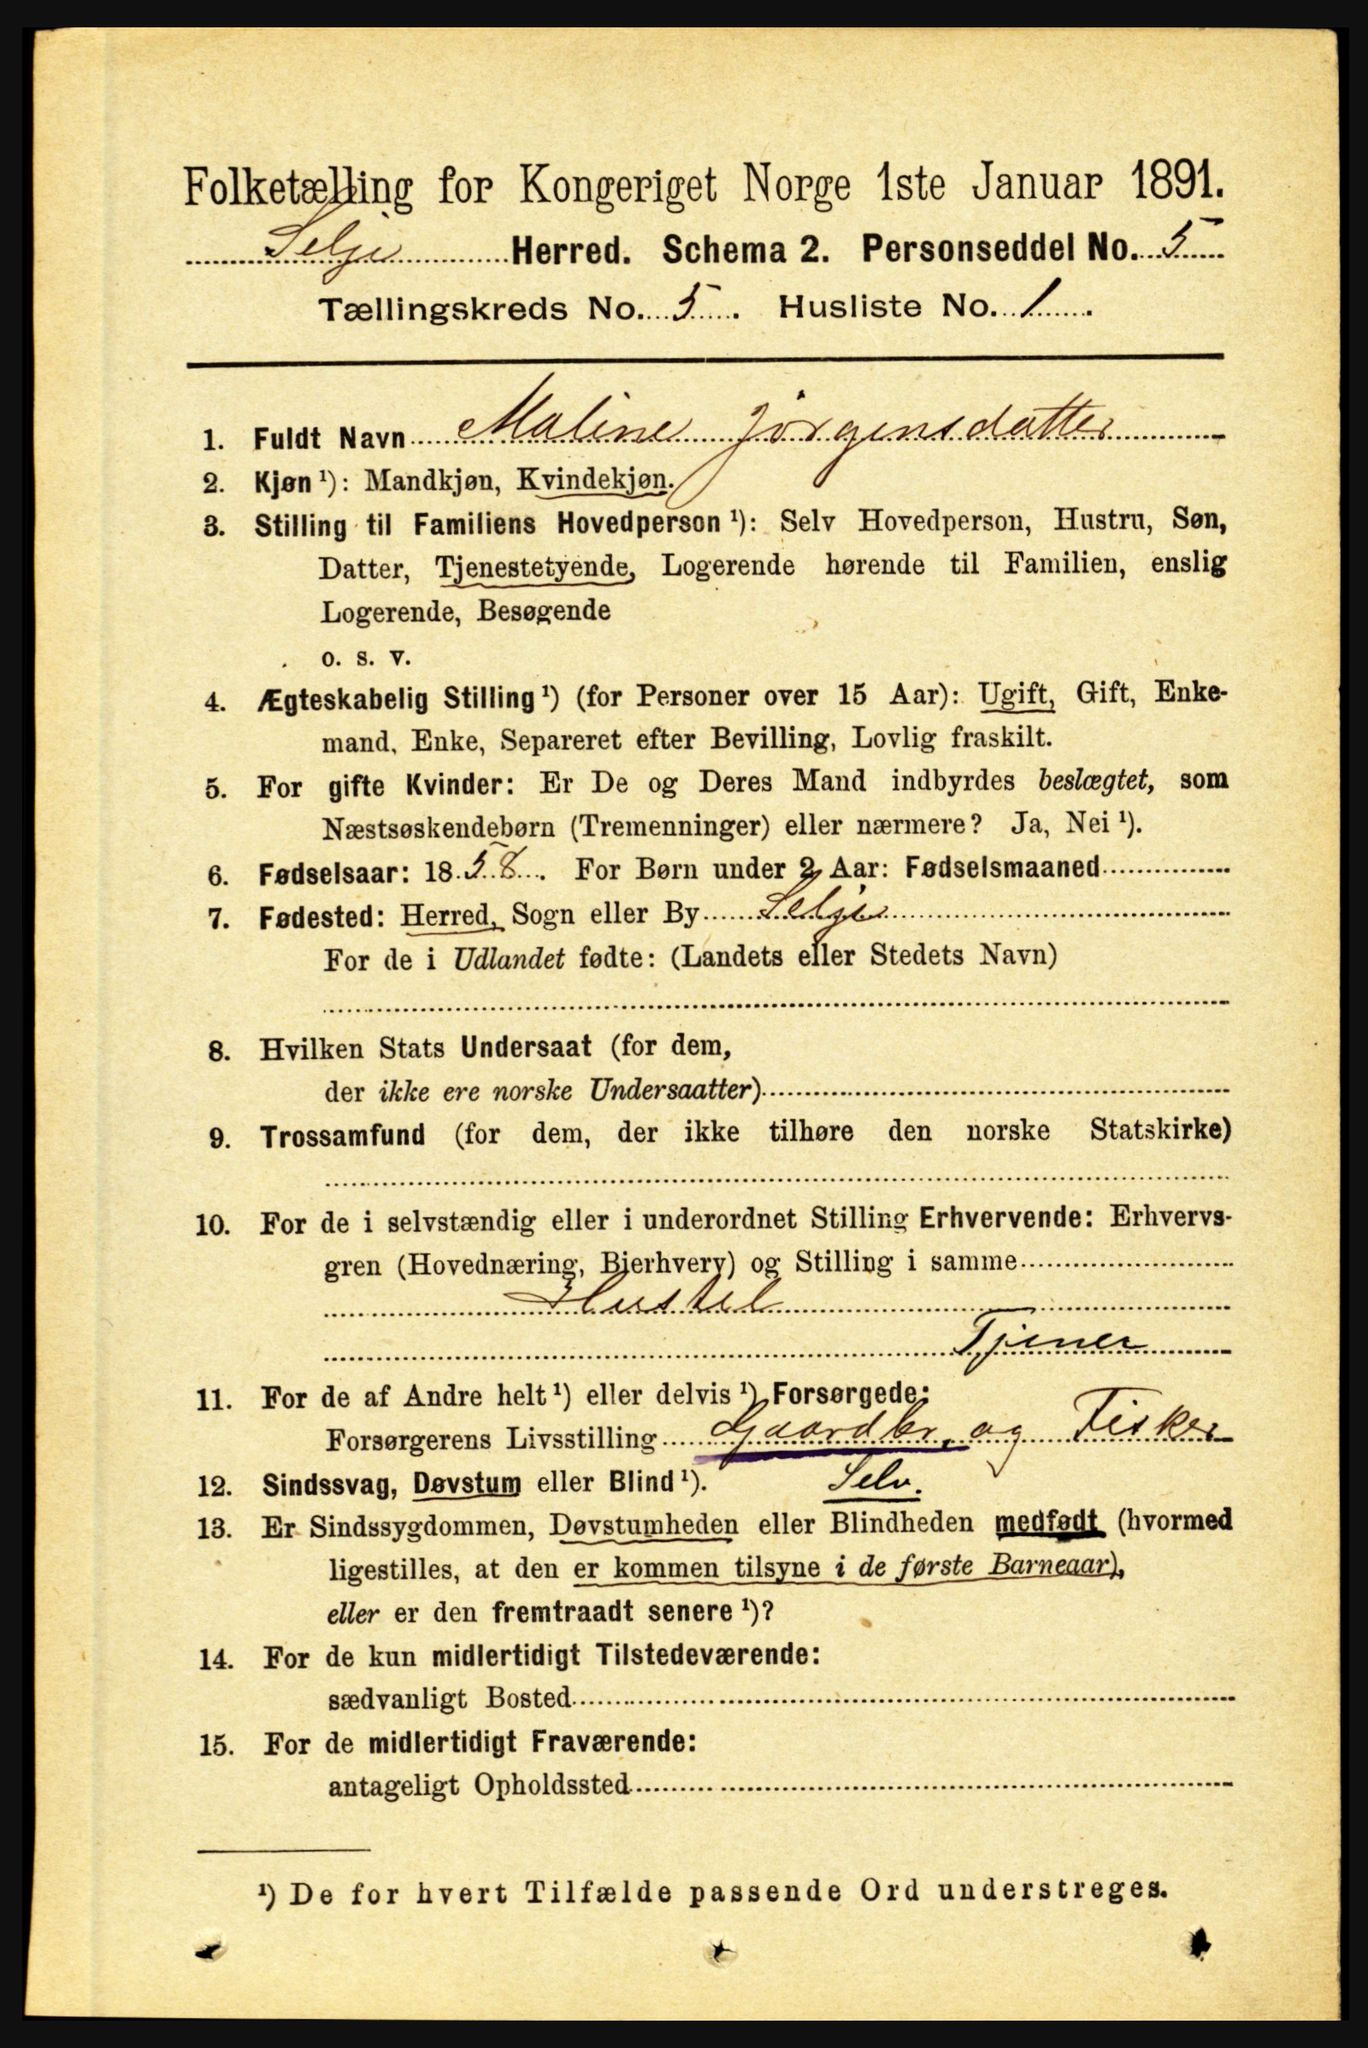 Folketælling for Kongeriget Norge 1ste Januar 1891.
Selje Herred. Schema 2. Personseddel No. 5
Tællingskreds No. 5. Husliste No. 1.
1. Fuldt Navn Maline Jörgensdatter
2. Kjøn ¹): Mandkjøn, Kvindekjøn.
3. Stilling til Familiens Hovedperson ¹): Selv Hovedperson, Hustru, Søn,
Datter, Tjenestetyende, Logerende hørende til Familien, enslig
Logerende, Besøgende
o. s. v.
4. Ægteskabelig Stilling ¹) (for Personer over 15 Aar): Ugift, Gift, Enke-
mand, Enke, Separeret efter Bevilling, Lovlig fraskilt.
5. For gifte Kvinder: Er De og Deres Mand indbyrdes beslægtet, som
Næstsøskendebørn (Tremenninger) eller nærmere? Ja, Nei ¹).
6. Fødselsaar: 1858. For Børn under 2 Aar: Fødselsmaaned
7. Fødested: Herred, Sogn eller By Selje
For de i Udlandet fødte: (Landets eller Stedets Navn)
8. Hvilken Stats Undersaat (for dem,
der ikke ere norske Undersaatter)
9. Trossamfund (for dem, der ikke tilhøre den norske Statskirke)
10. For de i selvstændig eller i underordnet Stilling Erhvervende: Erhvervs-
gren (Hovednæring, Bierhverv) og Stilling i samme
Hustel
Tjener
11. For de af Andre helt ¹) eller delvis ¹) Forsørgede:
Forsørgerens Livsstilling Gaardbr. og Fisker
12. Sindssvag, Døvstum eller Blind ¹). Selv.
13. Er Sindssygdommen, Døvstumheden eller Blindheden medfødt (hvormed
ligestilles, at den er kommen tilsyne i de første Barneaar),
eller er den fremtraadt senere ¹)?
14. For de kun midlertidigt Tilstedeværende:
sædvanligt Bosted
15. For de midlertidigt Fraværende:
antageligt Opholdssted
¹) De for hvert Tilfælde passende Ord understreges.